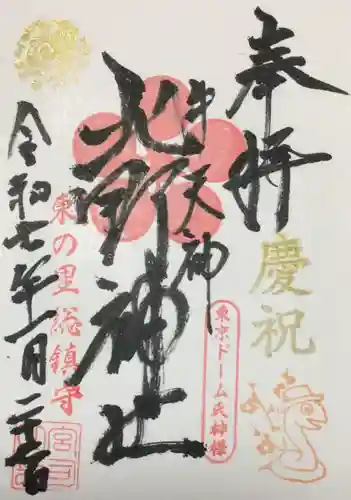 奉拝
慶祝
牛天神
北野神社
東京ドーム氏神様
東の里総鎮守
令和七年一月二十五日